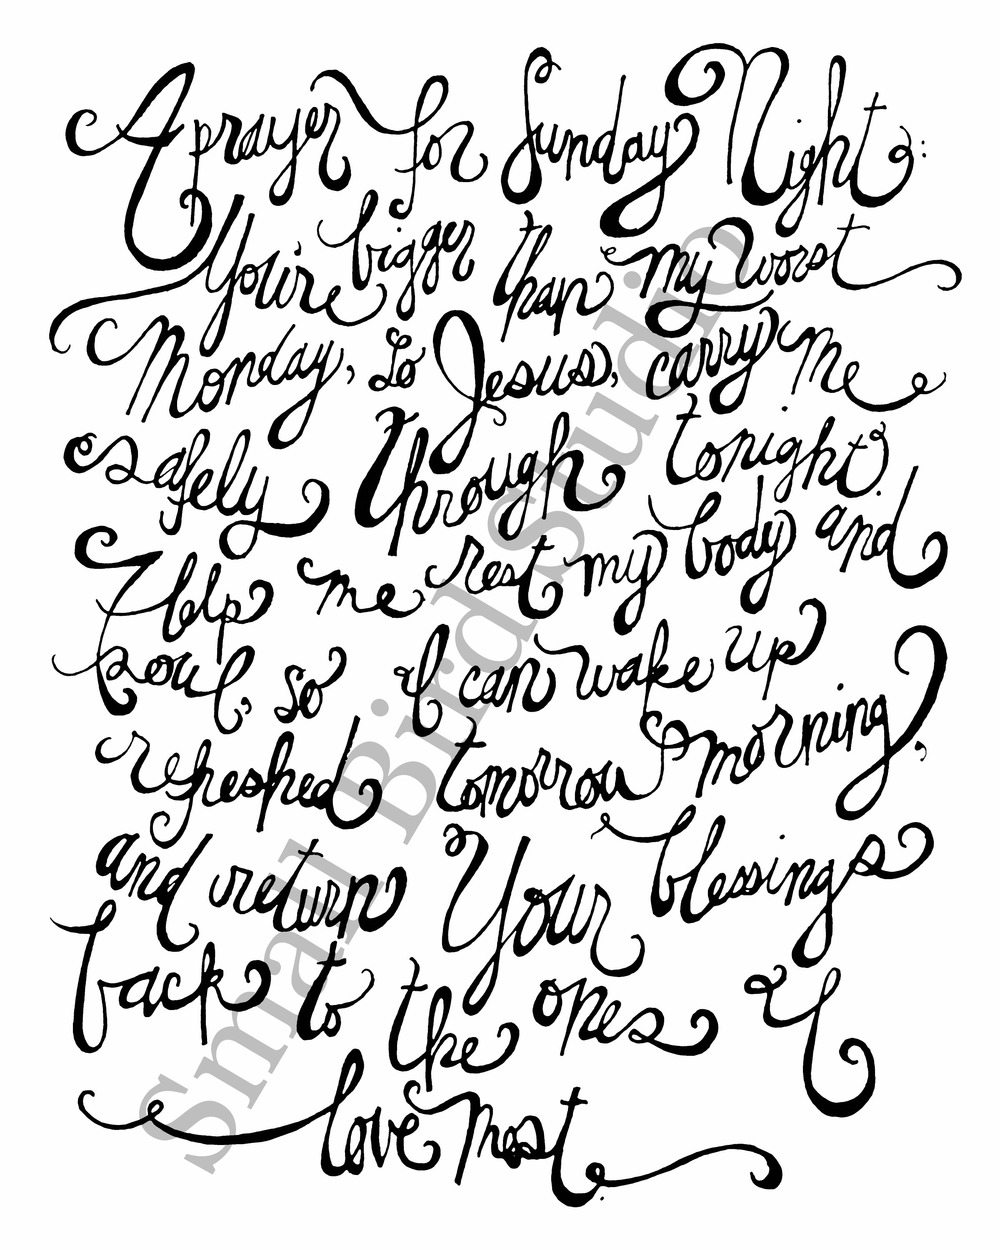 A prayer for Sunday Night:
You're bigger than my worst
Monday, so Jesus, carry me
safely through tonight.
Help me rest my body and
soul, so I can wake up
refreshed tomorrow morning,
and return Your blessings
back to the ones I
love most.
Small Bird Studio